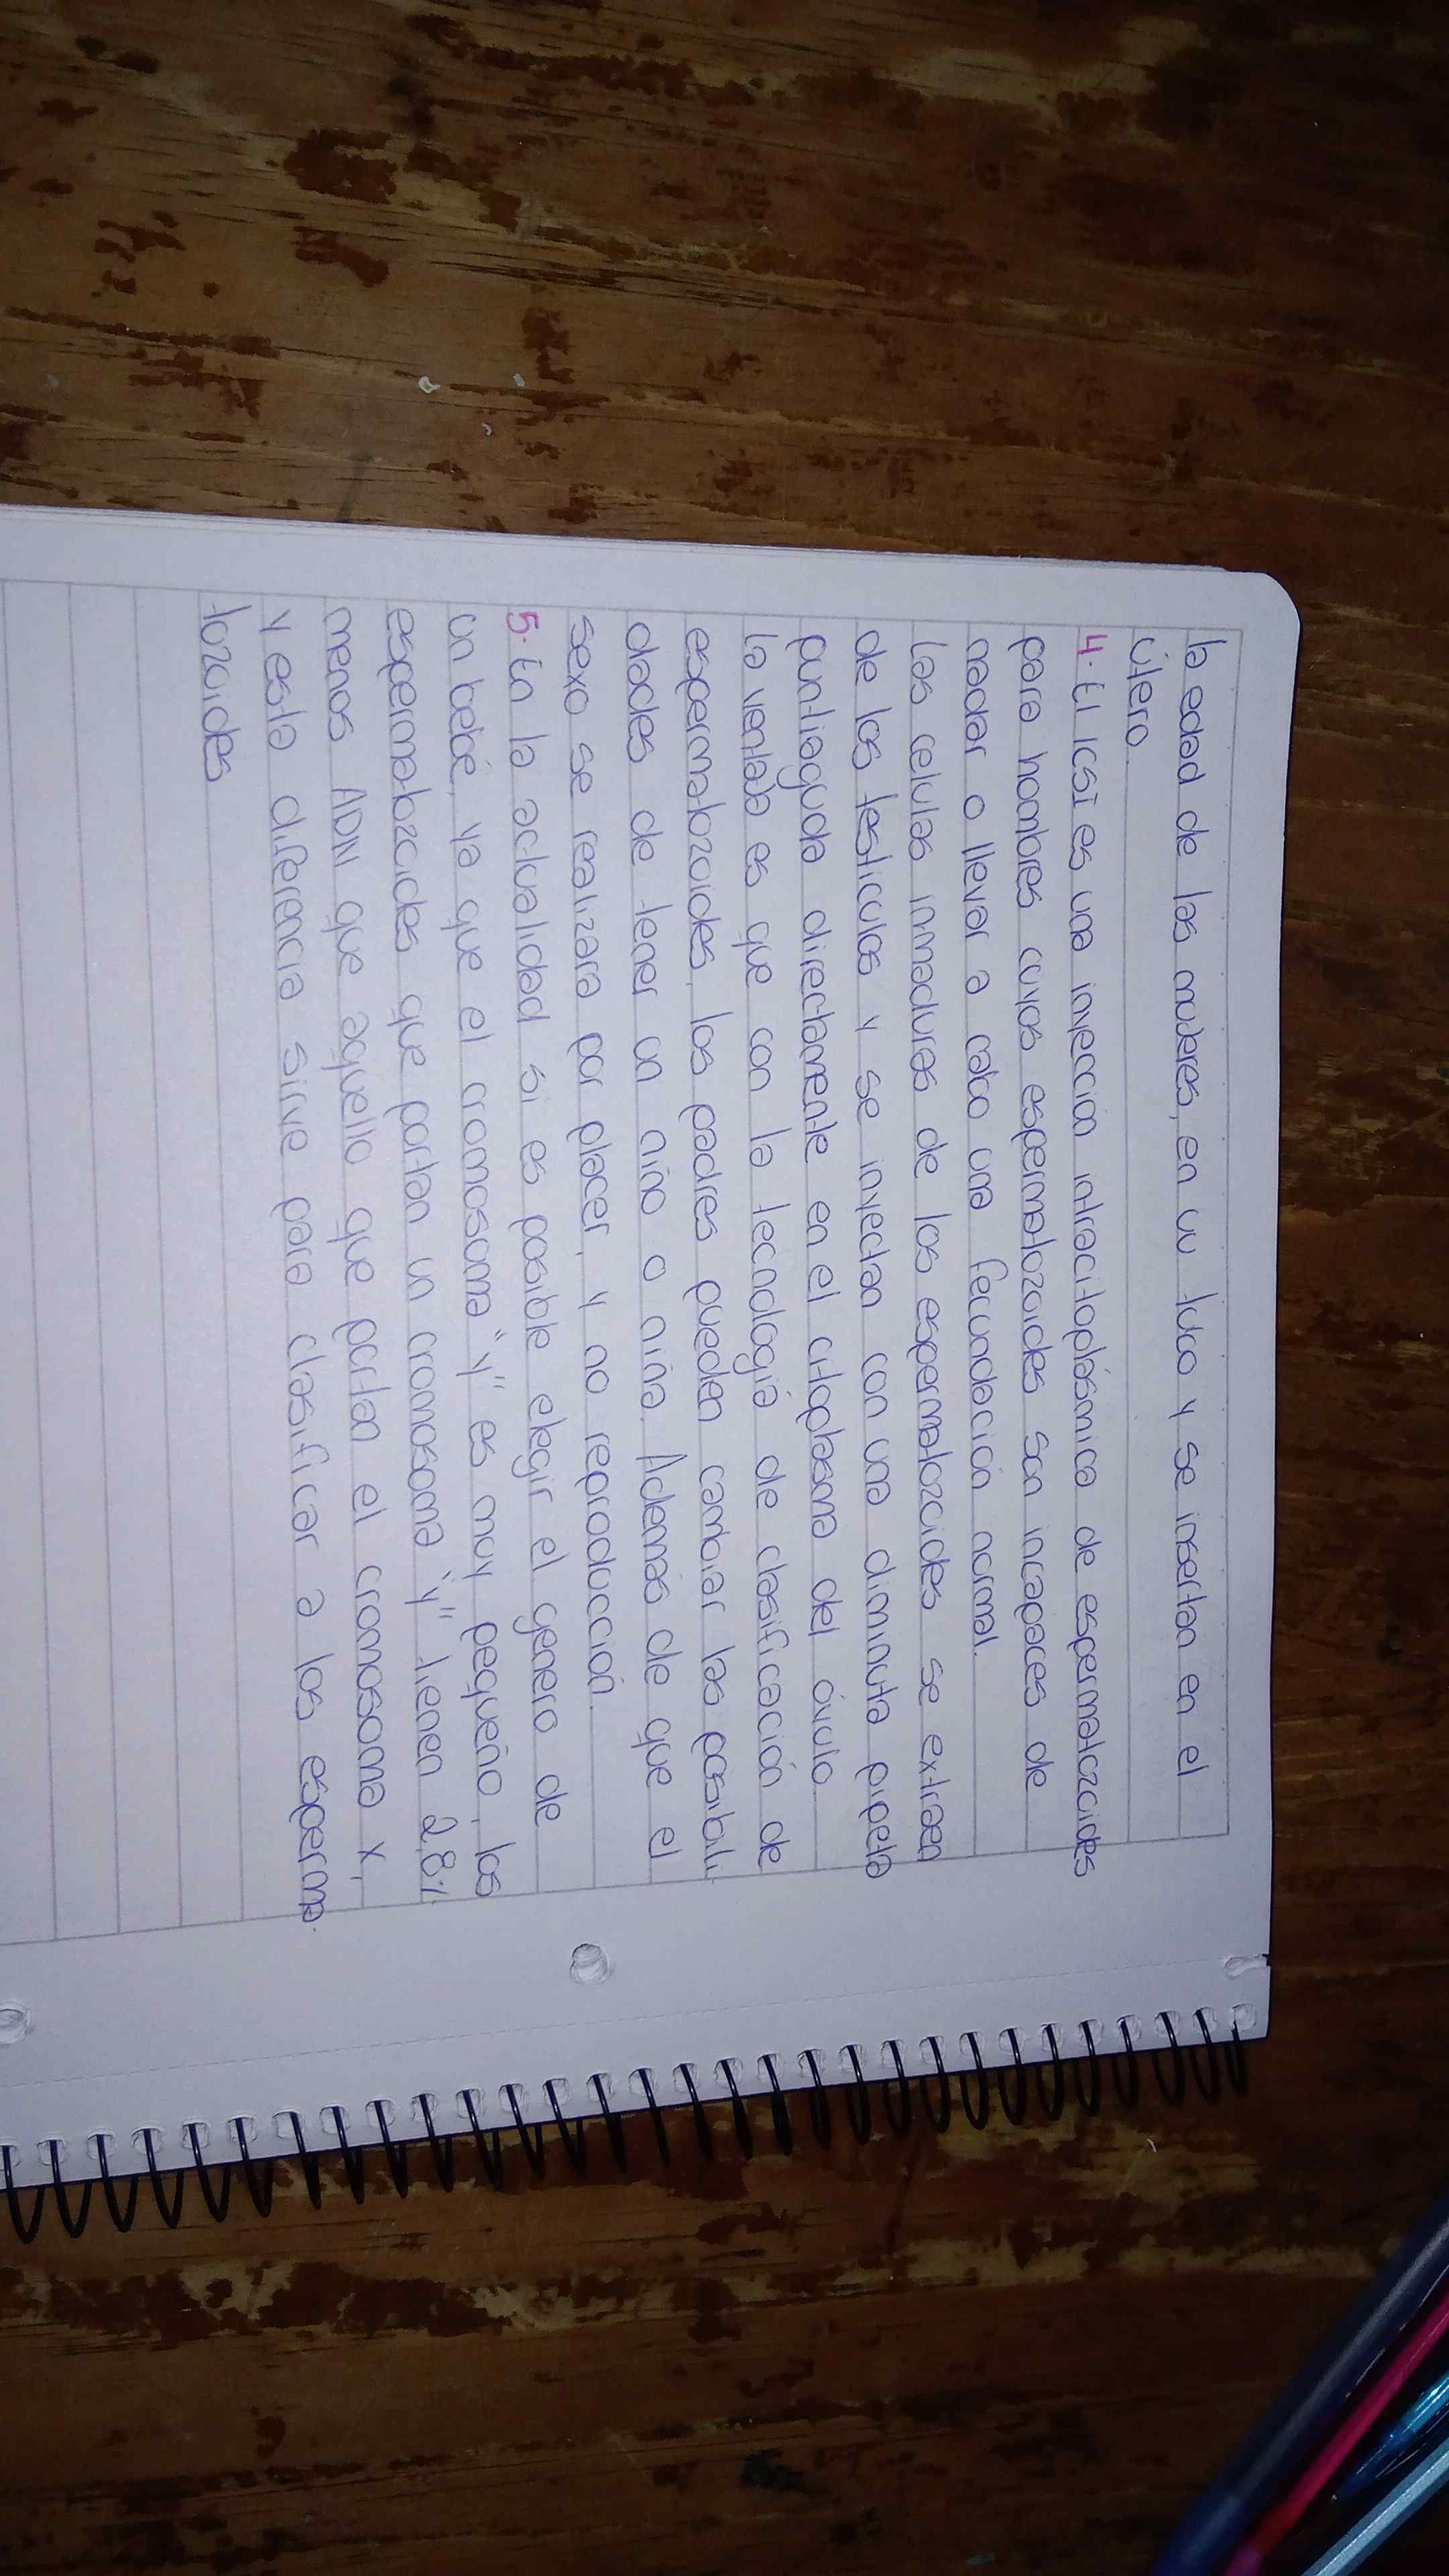 la edad de las mujeres, en un tubo y se insertan en el
útero.
4. El ICSI es una inyección intracitoplásmica de espermatozoides
para hombres cuyos espermatozoides son incapaces de
nadar o llevar a cabo una fecundación normal.
Las celulas inmaduras de los espermatozoides se extraen
de los testiculos y se inyectan con una diminuta pipeta
puntiaguda directamente en el citoplasma del óvulo.
La ventaja es que con la tecnología de clasificación de
espermatozoides, los padres pueden cambiar las posibili-
dades de tener un niño o niña. Además de que el
sexo se realizara por placer, y no reproducción.
5. En la actualidad si es posible elegir el genero de
un bebé, ya que el cromosoma "y" es muy pequeño, los
espermatozoides que portan un cromosoma "y" tienen 2,8%
menos ADN que aquello que portan el cromosoma x,
y esta diferencia sirve para clasificar a los esperma-
tozoides